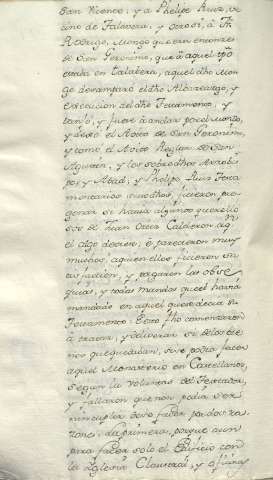 San Vicente, y a Phelipe Ruiz, ve
cino de Talavera, y otrosi, a Fr.
Rodrigo, Monge que era entonzes
de San Geronimo, que a aquel tpo
estaba en Talabera, aquel dho Mon
ge desamparó el dho Albazeazgo, y
execucion del dho Testamento, y
se fue a andar por el mundo,
y dexó el Avito de San Geronimo,
y tomó el Avito Reglar de San
Agustin, y los sobredhos Arzobis
po, y Abad, y Phelipe Ruiz Testa
mentarios susodhos, ficieron pre
gonar si havia algunos querello
sos de Juan Ortiz Calderon, a q.
el algo deviese, e parecieron muy
muchos, a quien ellos ficieron en
satisfaccion, y pagaron las obse
quias, y todas mandas que el havia
mandado en aquel que se decia su
Testamento. Esto fho comenzaron
a tratar, y deliverar si de los bie
nes que quedaban, si se podia facer
aquel Monasterio en Castellanos,
segun la voluntad del Testador,
y fallaron que non podia ser
nin cumplidero facer por dos ra
zones. La primera, porque aun
para facer solo el Edificio con
la Iglesia Claustral, y oficinas